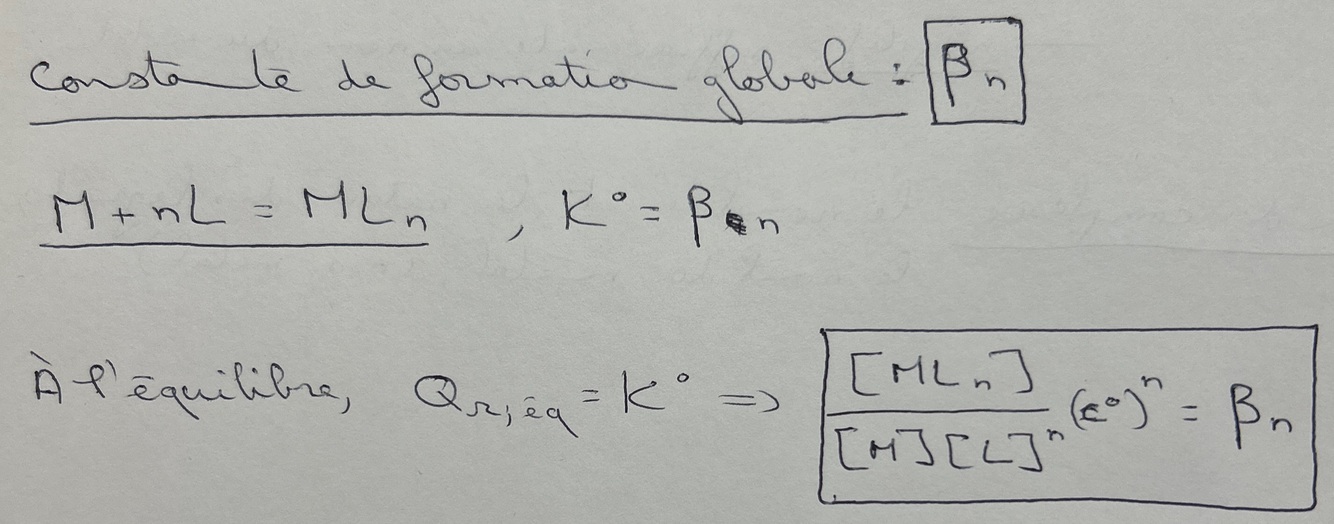 Constante de formation globale : βn
M + nL = MLn , K° = βn
À l'équilibre, Qr,éq = K° => [MLn] / [M][L]^n (c°)^n = βn